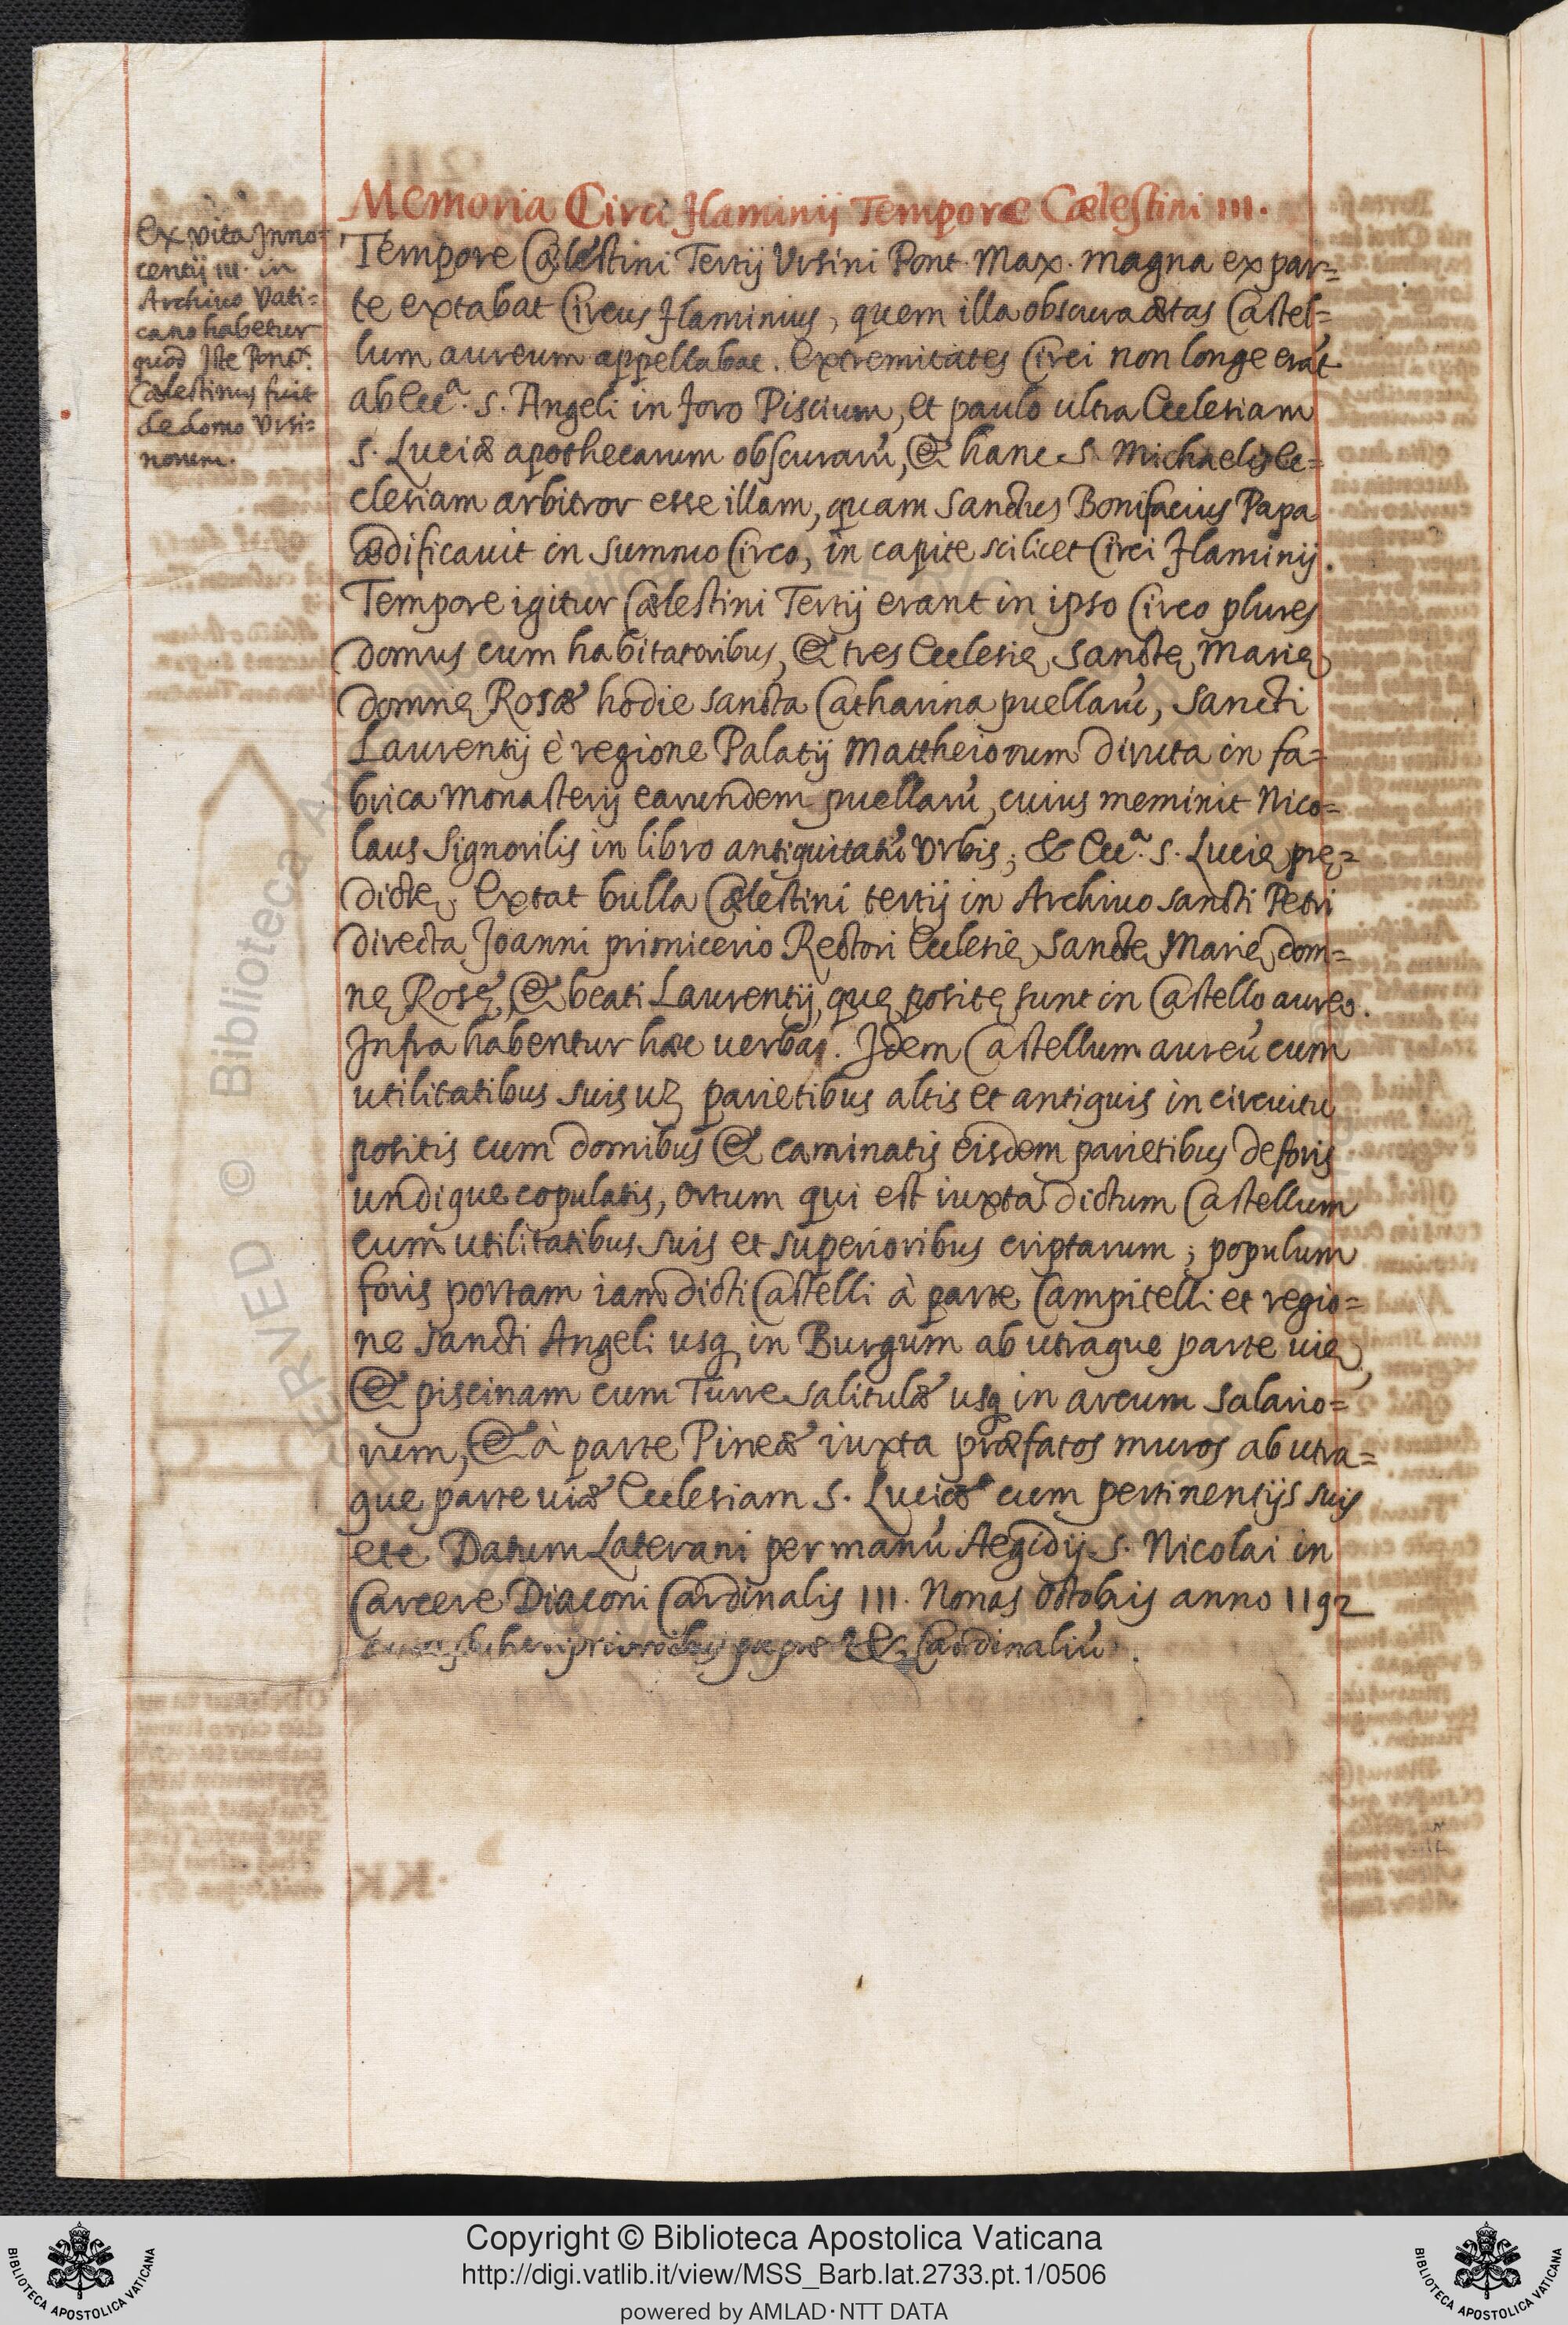 Memoria Circi Flaminij Tempore Cælestini III.
Ex vita Inno=
centij III. in
Archivo Vati=
cano habetur
quod Iste Pont.x
Cælestinus fuit
de domo Vrsi=
norum.
Tempore Cælestini Tertij Vrsini Pont. Max. magna ex par=
te extabat Circus Flaminius, quem illa obscura ætas Castel=
lum aureum appellabat. Extremitates Circi non longe erāt
ab Ecc.a S. Angeli in Foro Piscium, et paulo ultra Ecclesiam
S. Luciæ apothecarum obscurarū, & hanc S. Michaelis Ec=
clesiam arbitror esse illam, quam Sanctus Bonifacius Papa
ædificauit in summo Circo, in capite scilicet Circi Flaminij.
Tempore igitur Cælestini Tertij erant in ipso Circo plures
domus cum habitatoribus, & tres Ecclesię, Sanctę Marię
domnę Rosæ hodie sancta Catharina puellarū, sancti
Laurentij è regione Palatij Mattheiorum diruta in fa=
brica monasterij earundem puellarū, cuius meminit Nico=
laus Signorilis in libro antiquitatū Vrbis; & Ecc.a S. Lucię prę=
dictę. Extat bulla Cælestini tertij in Archiuo sancti Petri
directa Joanni primicerio Rectori Ecclesię Sanctę Marię dom=
nę Rosę, & beati Laurentij, quę positę sunt in Castello aureo.
Infra habentur hæc uerba. Idem Castellum aureū cum
utilitatibus suis uȝ parietibus altis et antiquis in circuitu
positis cum domibus & caminatis eisdem parietibus deforis
undique copulatis, ortum qui est iuxta dictum Castellum
cum utilitatibus suis et superioribus criptarum; populum
foris portam iam dicti Castelli à parte Campitelli et regio=
ne sancti Angeli usq in Burgum ab utraque parte uię,
& piscinam cum Turre Salitulæ usq in arcum Salario=
rum, & à parte Pineæ iuxta præfatos muros ab utra=
que parte uiæ Ecclesiam S. Luciæ cum pertinentijs suis
etc Datum Laterani per manū Aegidij S. Nicolai in
Carcere Diaconi Cardinalis III. Nonas Octobris anno 1192
papæ & Cardinaliū.
KK.
Copyright © Biblioteca Apostolica Vaticana
http://digi.vatlib.it/view/MSS_Barb.lat.2733.pt.1/0506
powered by AMLAD·NTT DATA
BIBLIOTECA APOSTOLICA VATICANA
BIBLIOTECA APOSTOLICA VATICANA